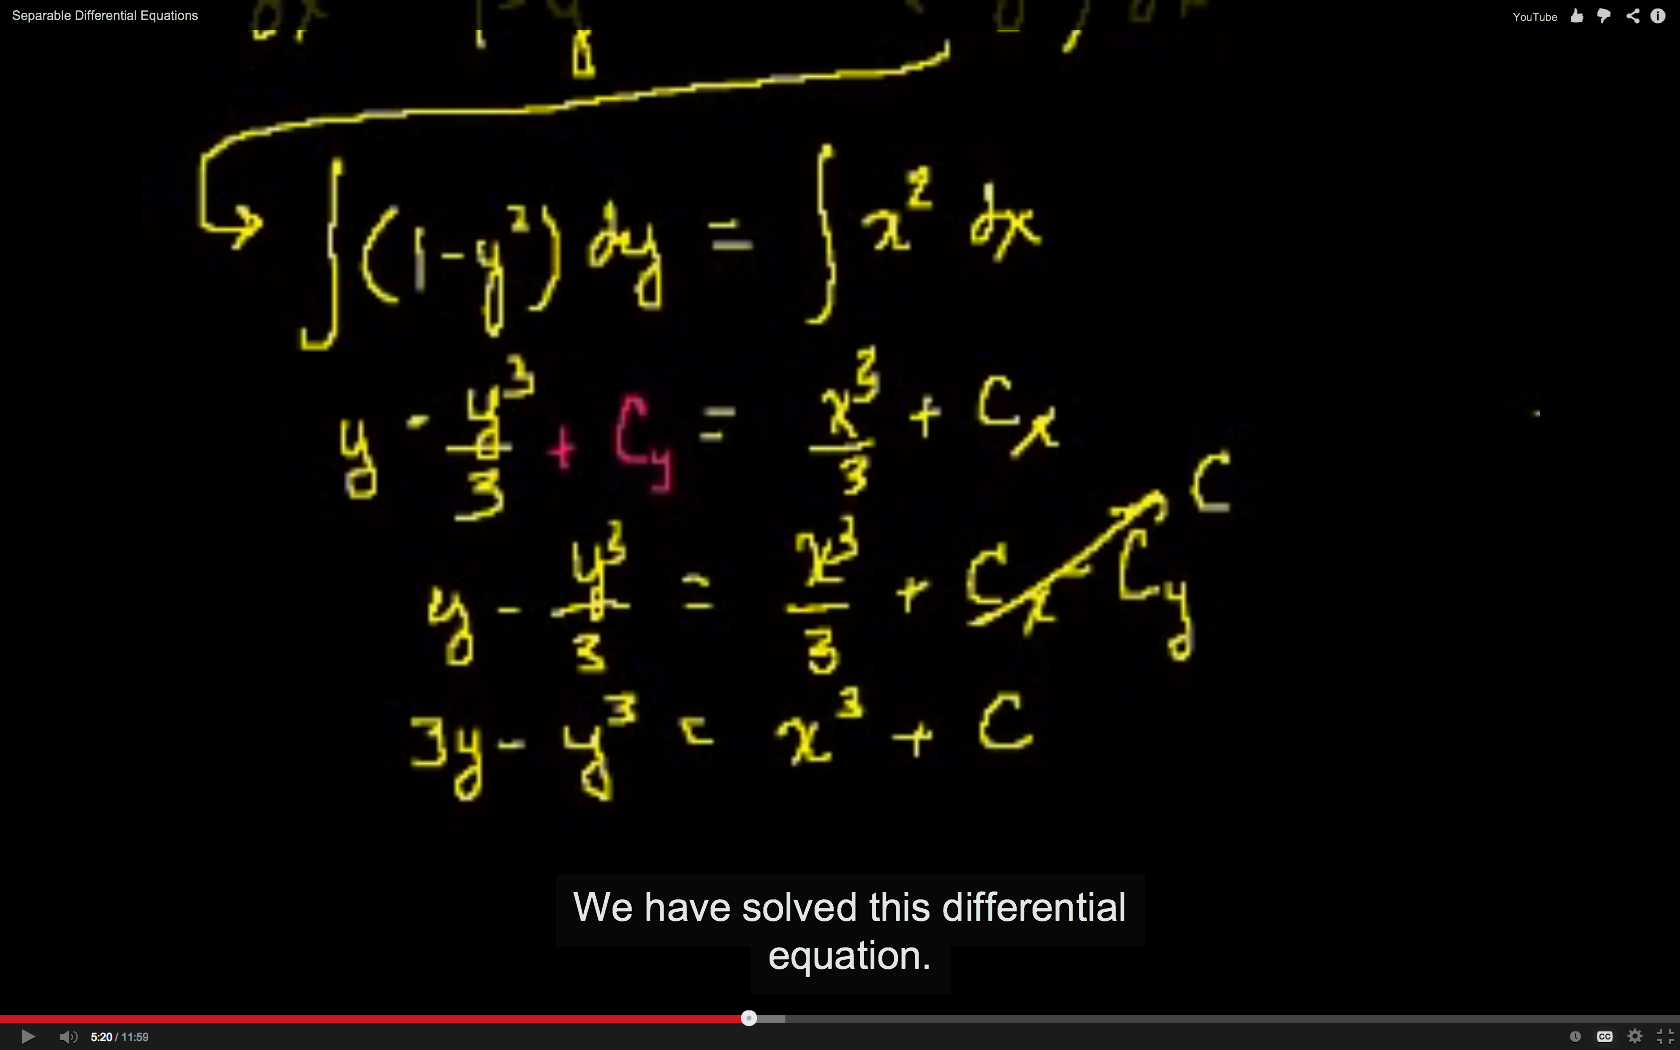 Separable Differential Equations
YouTube
∫(1-y²) dy = ∫ x² dx
y - y³/3 + Cy = x³/3 + Cx
C
y - y³/3 = x³/3 + Cx - Cy
3y - y³ = x³ + C
We have solved this differential
equation.
5:20 / 11:59
CC